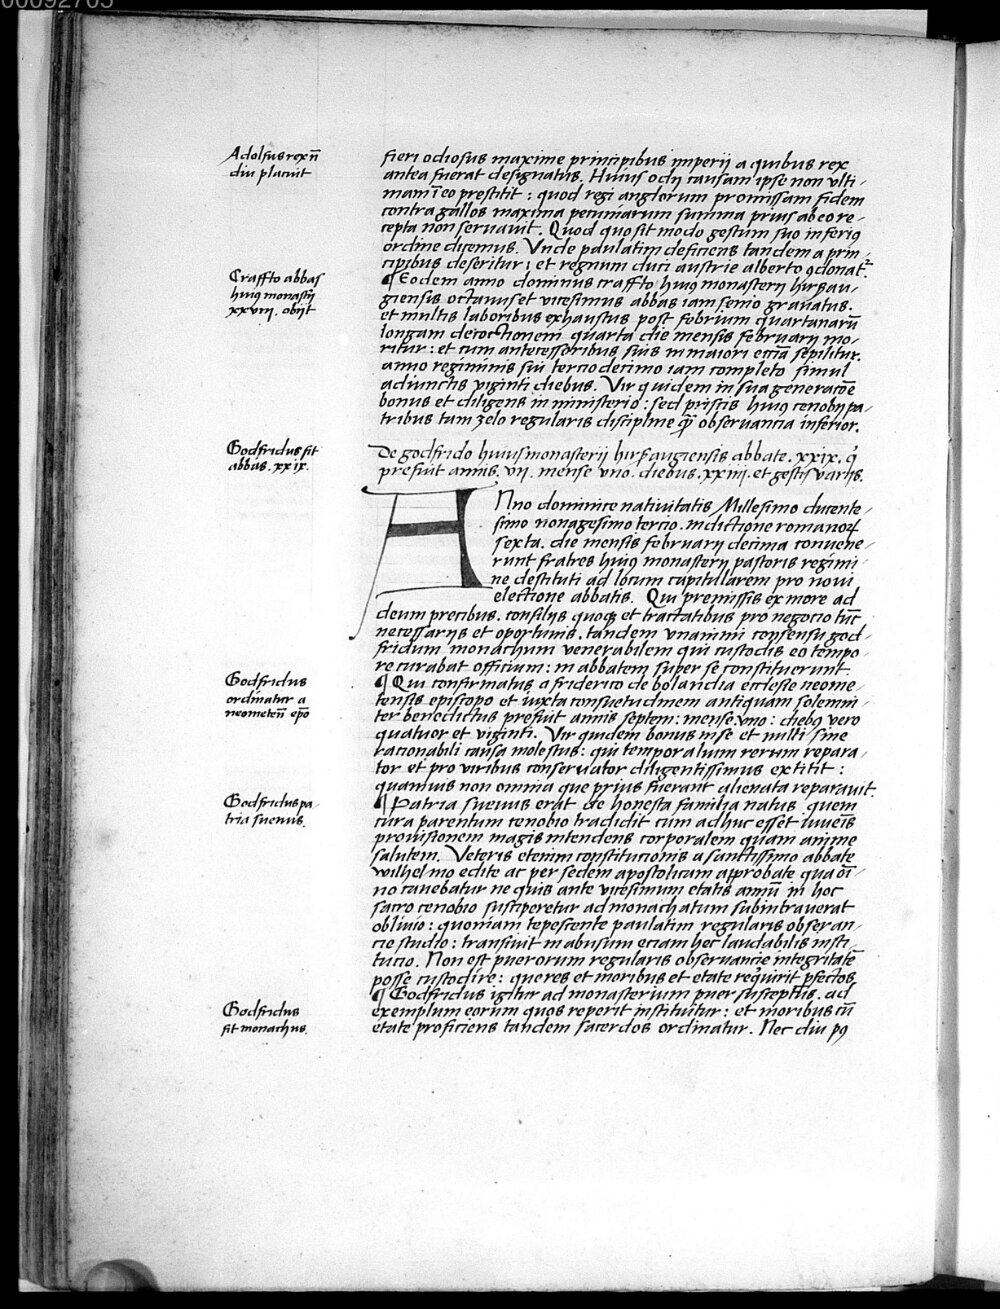 00092705
Adolfus rex nō
diu placuit
fieri odiosus maxime principibus imperij a quibus rex
antea fuerat designatus. Huius odij causam ipse non ulti-
mam ī eo prestitit: quod regi anglorum promissam fidem
contra gallos maxima pecuniarum summa prius ab eo re-
cepta non seruauit. Quod quo sit modo gestum suo inferiꝯ
ordine dicemus. Unde paulatim deficiens tandem a prin-
cipibus deseritur: et regnum duci austrie alberto ꝯdonat᷑.
Craffto abbas
huiꝯ monastij
xxviij. obijt
¶ Eodem anno dominus craffto huiꝯ monasterij hirsau-
giensis octauus et vicesimus abbas iam senio grauatus.
et multis laboribus exhaustus post febrium quartanarū
longam decoctionem quarta die mensis februarij mo-
ritur: et cum antecessoribus suis in maiori eccīa sepilitur.
anno regiminis sui terciodecimo iam completo simul
adiunctis viginti diebus. Vir quidem in sua generacōe
bonus et diligens in ministerio: sed priscis huiꝯ cenobij pa-
tribus tam zelo regularis discipline ꝙ̄ obseruancia inferior.
Godfridus fit
abbas. xxix.
De godfrido huius monasterij hirsaugiensis abbate. xxix. q̇
prefuit annis. vij. mense vno. diebus. xxiiij. et gestis varijs.
ANno dominice natiuitatis Millesimo ducente-
simo nonagesimo tercio. indictione romanoꝝ
sexta. die mensis februarij decima conuene-
runt fratres huiꝯ monasterij pastoris regimi-
ne destituti ad locum capitularem pro noui
electione abbatis. Qui premissis ex more ad
deum precibus. consilijs quoqꝫ et tractatibus pro negocio tūc
necessarijs et oportunis. tandem vnanimi consensu god-
fridum monachum venerabilem qui custodis eo tempo-
re curabat officium: in abbatem super se constituerunt.
Godfridus
ordinatur a
neometeñ ep̄o
¶ Qui confirmatus a friderico de bolandia ecclesie neome-
tensis episcopo et iuxta consuetudinem antiquam solemni-
ter benedictus prefuit annis septem: mense vno: diebꝯ vero
quatuor et viginti. Vir quidem bonus in se et nulli sine
racionabili causa molestus: qui temporalium rerum repara-
tor et pro viribus conseruator diligentissimus extitit:
quamuis non omnia que prius fuerant alienata reparauit.
Godfridus pa-
tria sueuus.
¶ Patria sueuus erat de honesta familia natus quem
cura parentum cenobio tradidit cum adhuc esset iuueīs
prouisionem magis intendens corporalem quam anime
salutem. Veteris etenim constitucionis a sanctissimo abbate
wilhelmo edite ac per sedem apostolicam approbate qua oī-
no cauebatur ne quis ante vicesimum etatis annū in hoc
sacro cenobio susciperetur ad monachatum subintrauerat
obliuio: quoniam tepescente paulatim regularis obseruan-
cie studio: transiuit in abusum eciam hec laudabilis insti-
tucio. Non est puerorum regularis obseruancie integritatē
posse custodire: que res et moribus et etate requirit ꝑfectos.
Godfridus
fit monachus.
¶ Godfridus igitur ad monasterium puer susceptus. ad
exemplum eorum quos reperit instituitur: et moribus cū
etate proficiens tandem sacerdos ordinatur. Nec diu pꝯ